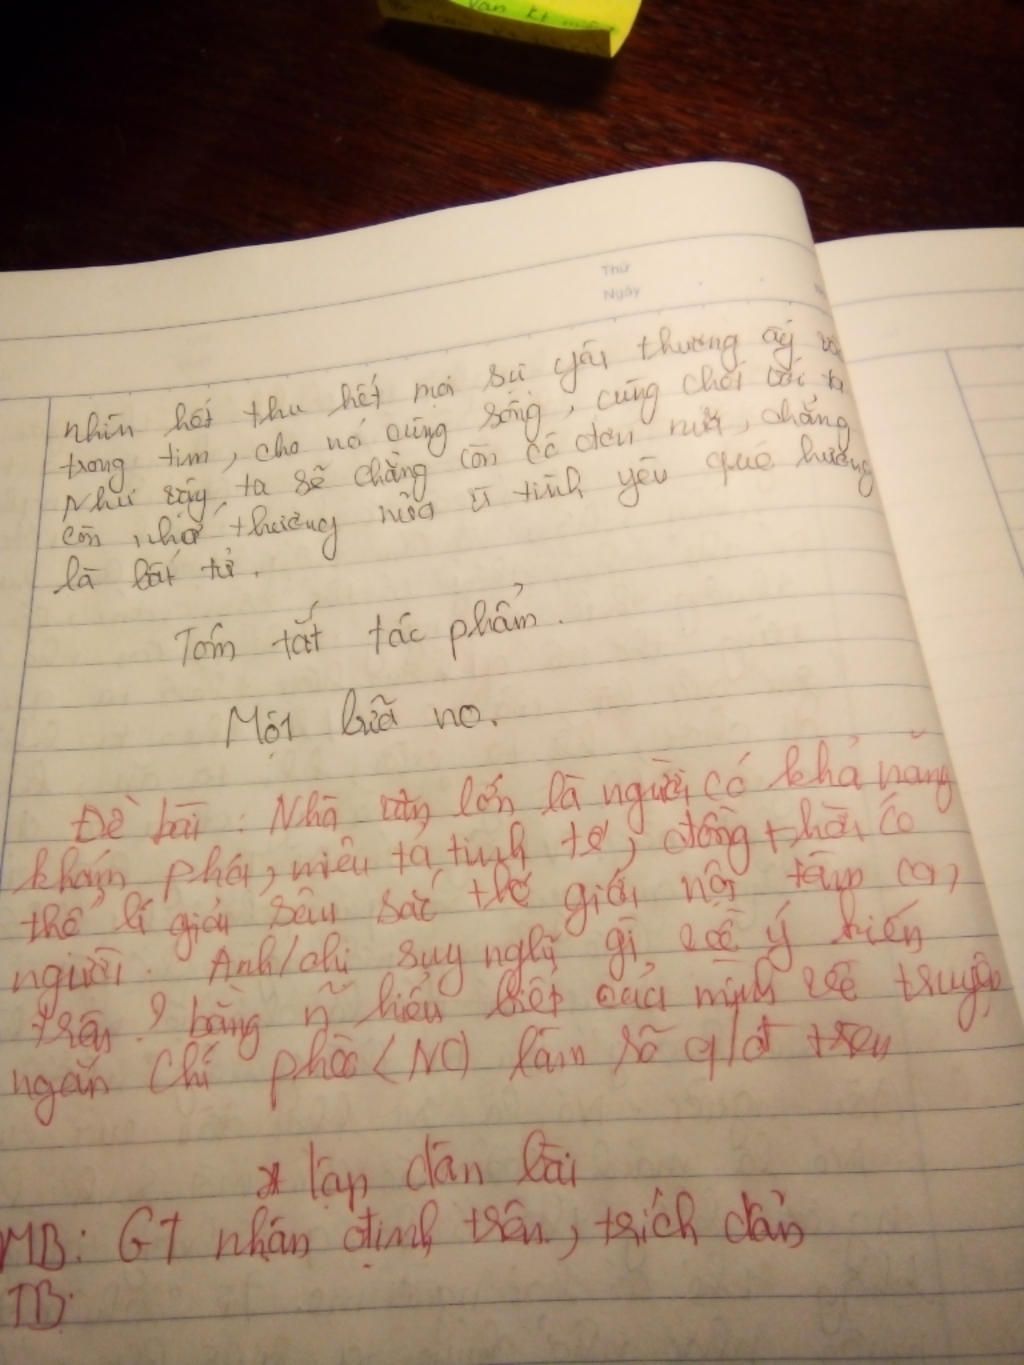 văn kt
Thứ
Ngày
nhìn hết thu hết mọi sự yêu thương ấy và
trong tim, cho nó cùng sống, cùng chơi với ta
Như vậy, ta sẽ chẳng còn cô đơn nữa, chẳng
còn nhớ thương nữa vì tình yêu quê hương
là bất tử.
Tóm tắt tác phẩm.
Một bữa no.
Đề bài: Nhà văn lớn là người có khả năng
khám phá, miêu tả tinh tế, đồng thời có
thể lí giải sâu sắc thế giới nội tâm con
người. Anh/chị suy nghĩ gì về ý kiến
trên? bằng ~ hiểu biết của mình về truyện
ngắn Chí phèo (NC) làm rõ q/đ trên
* lập dàn bài
MB: GT nhận định trên, trích dẫn
TB: